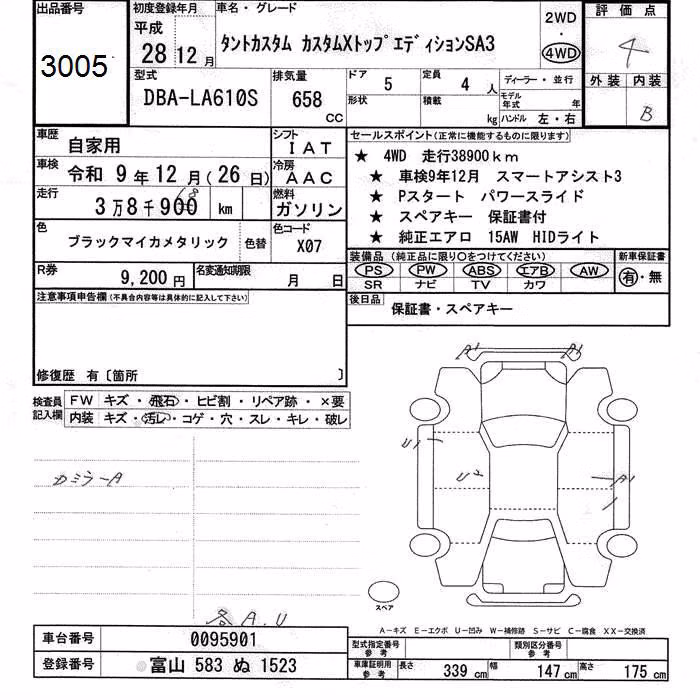 出品番号
3005
初度登録年月
平成
28 12月
車名・グレード
タントカスタム カスタムXトップエディションSA3
2WD
・
4WD
評価点
4
外装 内装
B
型式
DBA-LA610S
排気量
658
CC
ドア
5
定員
4 人
形状
積載
kg
ディーラー・並行
モデル年式 年
ハンドル 左・右
車歴
自家用
シフト
IAT
車検
令和 9年 12月(26日)
冷房
AAC
走行
3万8千900 km
燃料
ガソリン
色
ブラックマイカメタリック
色替
色コード
X07
R券
9,200円
名変通知期限
月 日
セールスポイント(正常に機能するものに限ります)
★ 4WD 走行38900km
★ 車検9年12月 スマートアシスト3
★ Pスタート パワースライド
★ スペアキー 保証書付
★ 純正エアロ 15AW HIDライト
装備品(純正品に限り〇をつけてください)
PS PW ABS エアB AW
SR ナビ TV カワ
新車保証書
有・無
後日品
保証書・スペアキー
注意事項申告欄(不具合内容等は具体的に記入して下さい)
修復歴 有〔箇所 〕
検査員記入欄
FW キズ・飛石・ヒビ割・リペア跡・×要
内装 キズ・汚レ・コゲ・穴・スレ・キレ・破レ
A1
A1
U1
U2
A1
ミラーA
各A.U
スペア
A-キズ E-エクボ U-凹み W-補修跡 S-サビ C-腐食 XX-交換済
車台番号
0095901
登録番号
富山 583 ぬ 1523
型式指定番号
参考
類別区分番号
参考
車庫証明用
参考
長さ 339 cm 幅 147 cm 高さ 175 cm